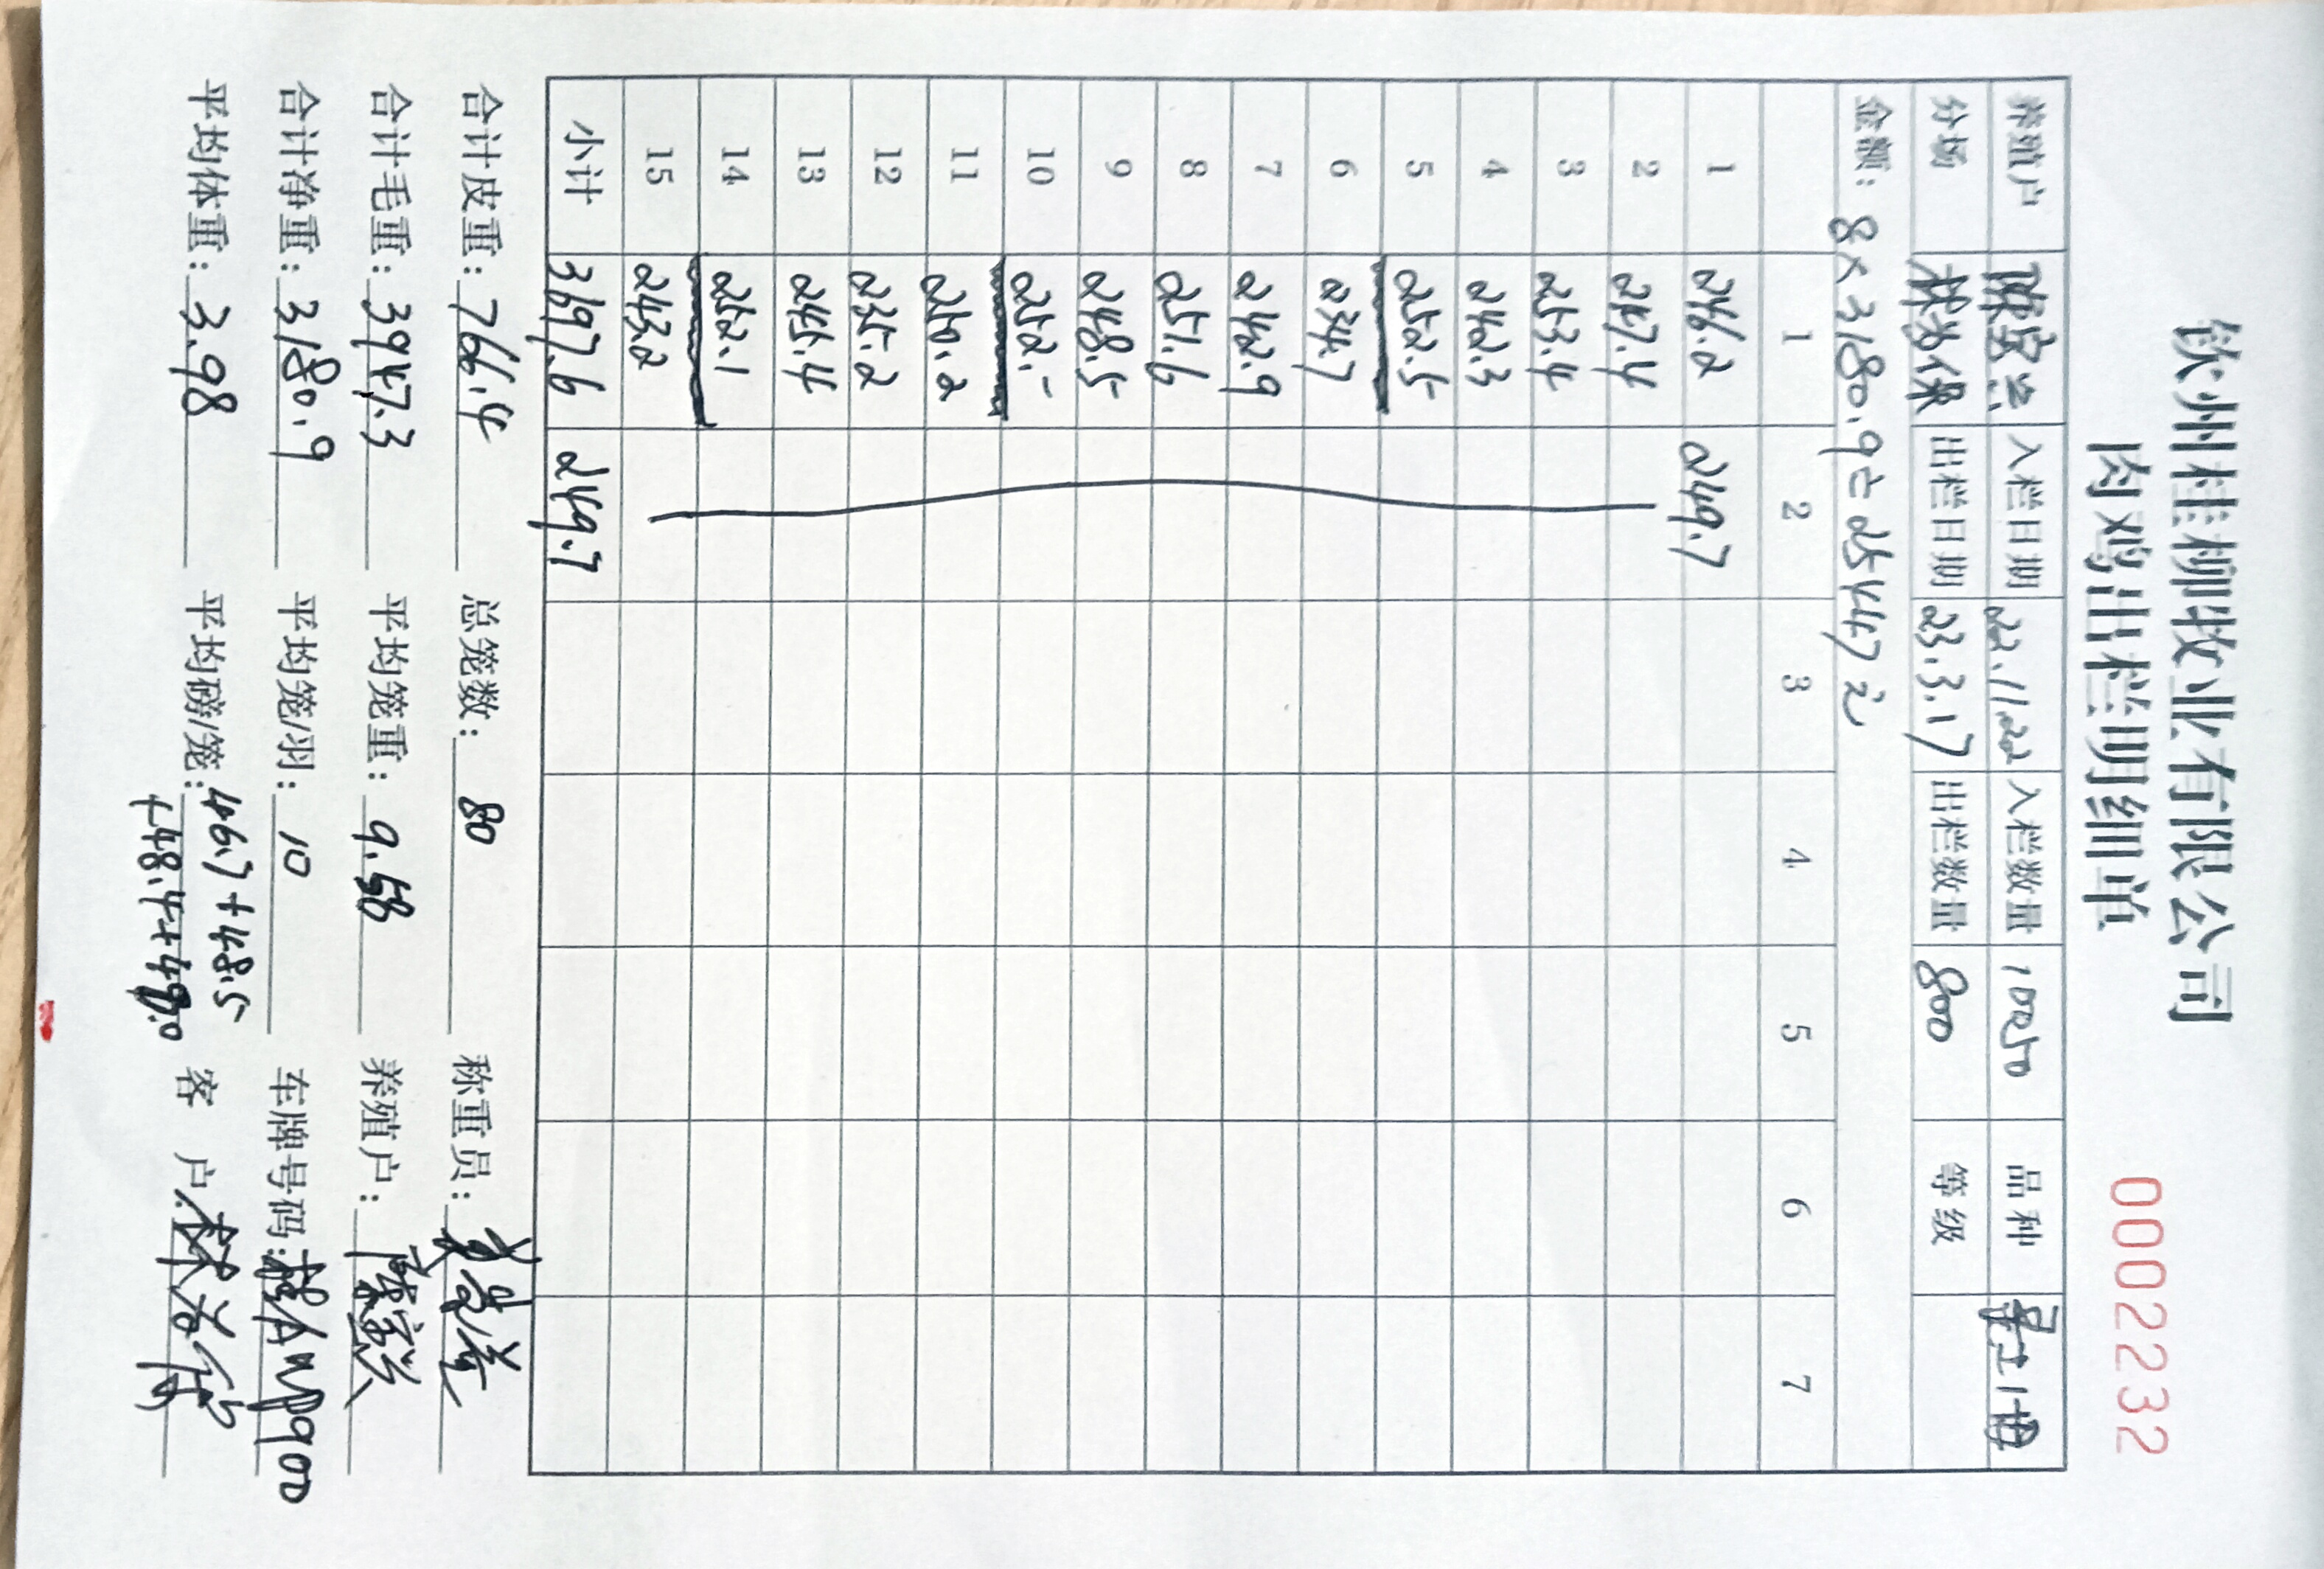 钦州桂柳牧业有限公司
肉鸡出栏明细单
0002232
养殖户 陈宝兴 入栏日期 22.11.22 入栏数量 10050 品种
分场 林为保 出栏日期 23.3.17 出栏数量 800 等级
金额: 8×3180.9=25447元
1 2 3 4 5 6 7
1 246.2 249.7
2 247.4
3 253.4
4 242.3
5 252.5
6 234.7
7 242.9
8 251.6
9 248.5
10 252.-
11 250.2
12 235.2
13 245.4
14 252.1
15 243.2
小计 3697.6 249.7
合计皮重: 766.4 总笼数: 80 称重员:
合计毛重: 3947.3 平均笼重: 9.58 养殖户: 陈宝兴
合计净重: 3180.9 平均笼/羽: 10 车牌号码:
平均体重: 3.98 平均磅/笼: 46.7+48.5 客 户: 林为保
+48.4+49.0